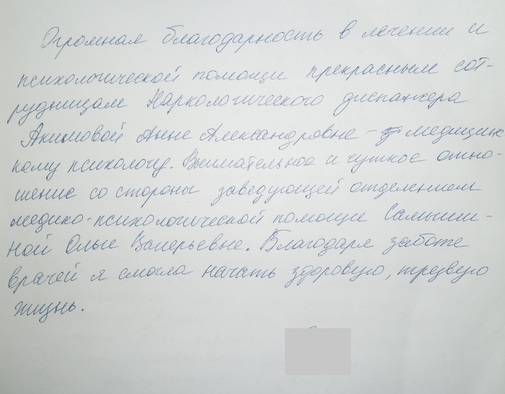 Огромная благодарность в лечении и
психологической помощи прекрасным сот-
рудницам Наркологического диспансера
Акимовой Анне Александровне - медицинс
кому психологу. Внимательное и чуткое отно-
шение со стороны заведующей отделением
медико-психологической помощи
ной Ольге Валерьевне. Благодаря заботе
врачей я смогла начать здоровую, трезвую
жизнь.